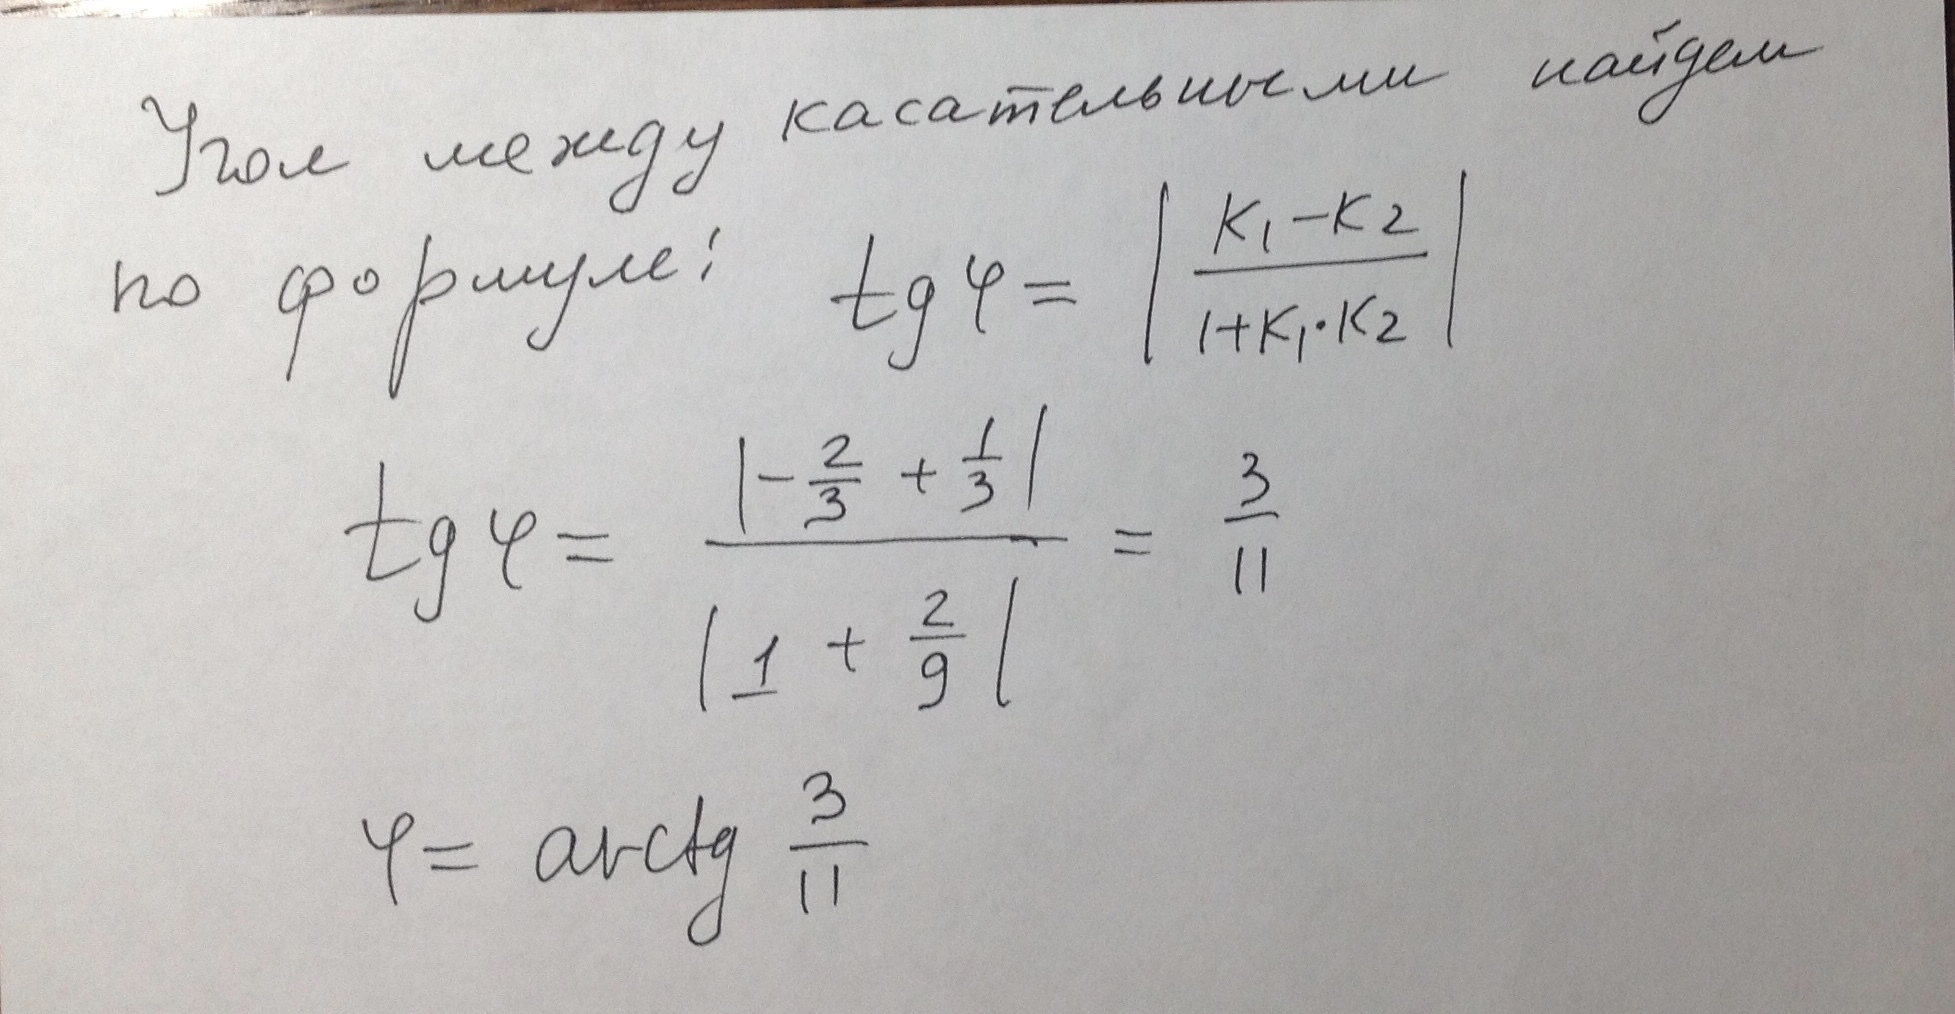 Угол между касательными найдем
по формуле: tg φ = | K₁ - K₂ / 1 + K₁ · K₂ |
tg φ = |- 2/3 + 1/3| / |1 + 2/9| = 3/11
φ = arctg 3/11